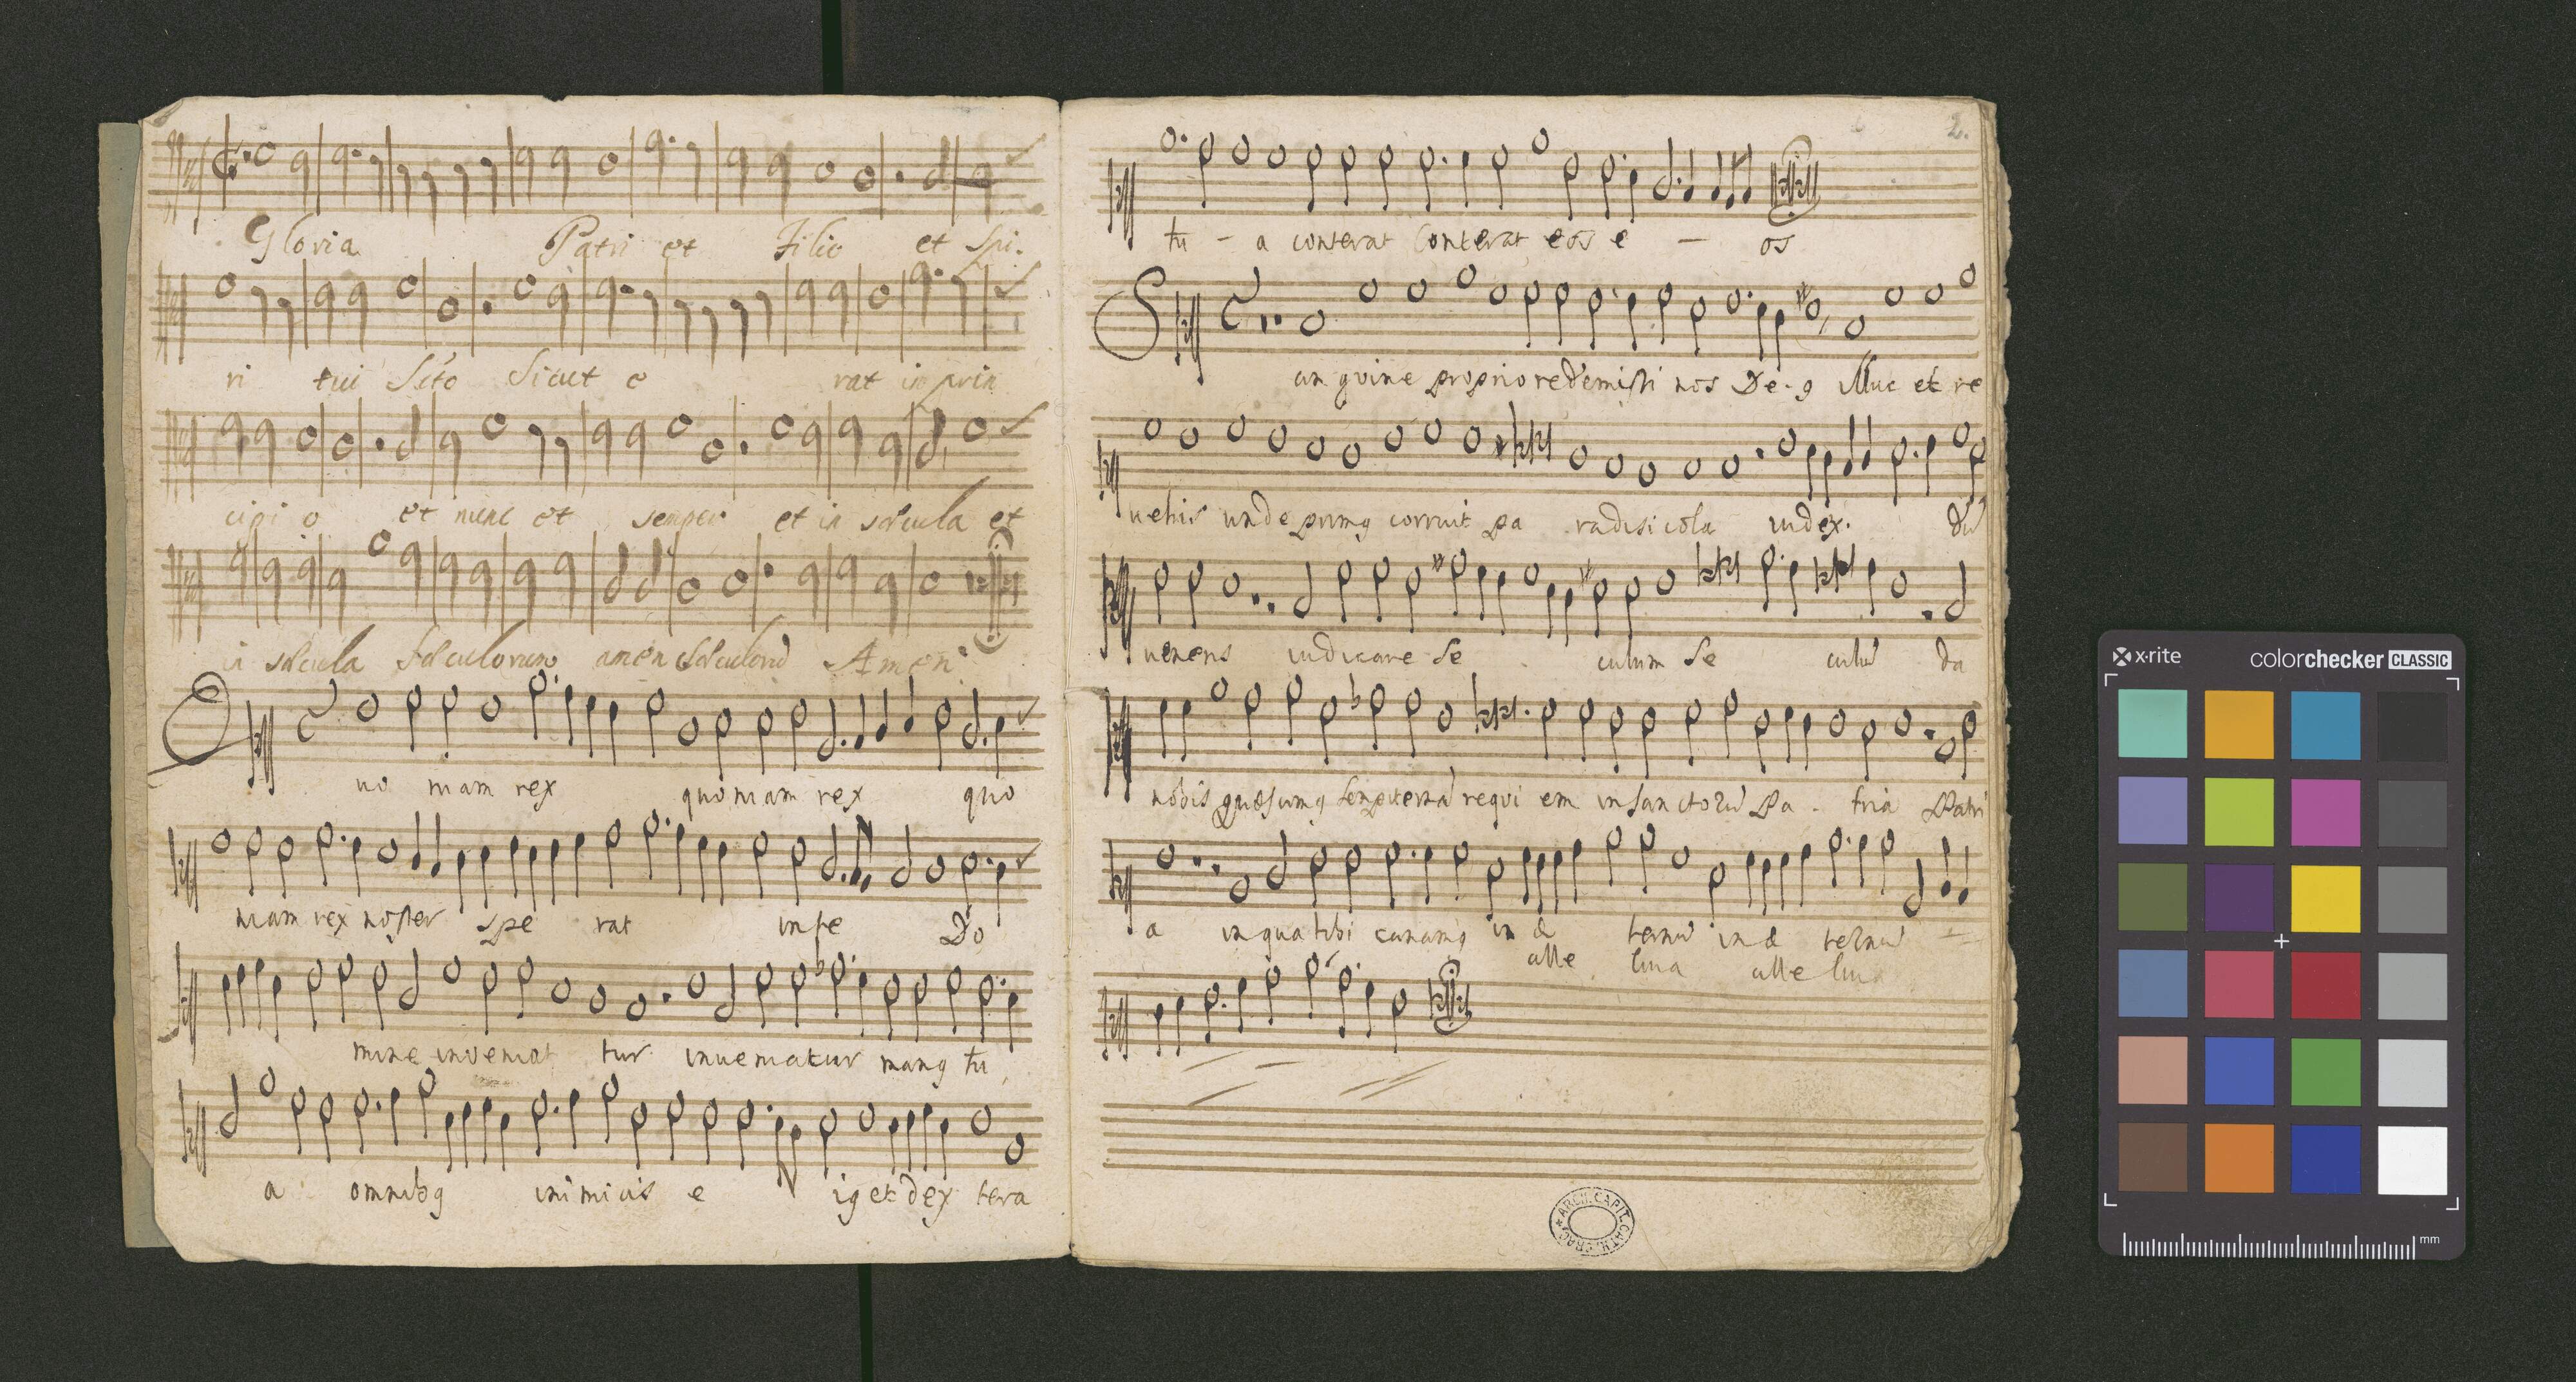 Gloria Patri et Filio et Spi.
ri tui Scto Sicut e rat in prin
cipi o et nunc et semper et in sæcula et
in sæcula Sæculorum amen Sæculorũ Amen
Q uo niam rex quoniam rex quo
niam rex noster spe rat in te Do
mine inveniat tur inueniatur manꝯ tu
a omnibꝯ inimicis e iꝯ et dex tera
2.
tu - a conterat Conterat eos e - os
S an guine proprio redemisti nos De - ꝯ illuc et re
uehis unde primꝯ corruit pa radisi cola iudex. dũ
uenens iudicare Se culum Se culũ da
nobis quæsumꝯ Sempiternã requi em in Sanctorũ Pa - tria Patri
a in qua tibi canamꝯ in æ ternũ in æ ternũ
alle luia alle luia
ARCH. CAPIT. CATH. CRAC.
x-rite colorchecker CLASSIC
mm